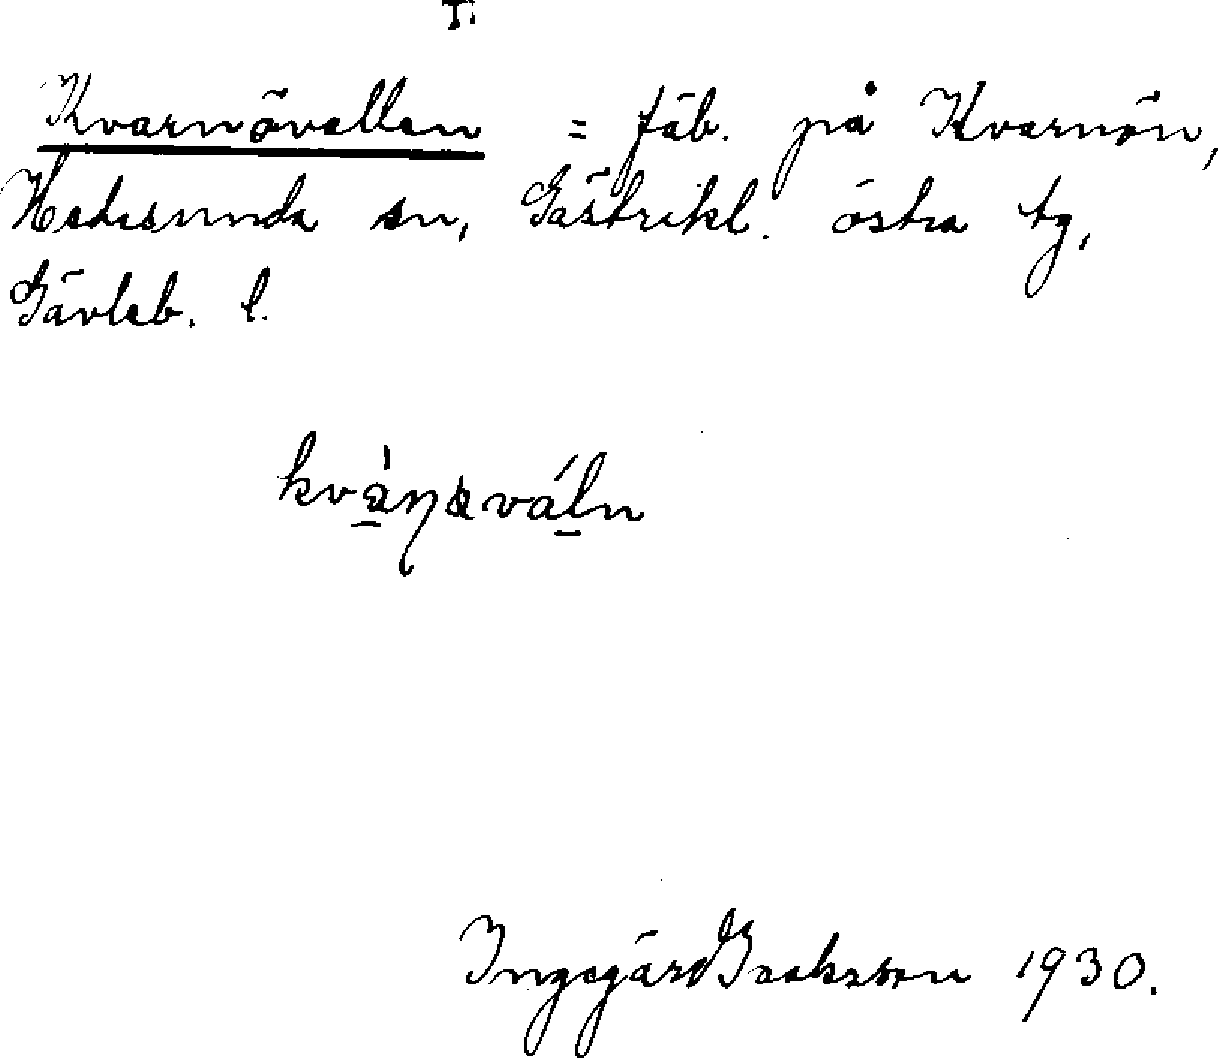 Kvarnövallen = fäb. på Kvarnön,
Hedesunda sn, Gästrikl. östra tg,
Gävleb. l.
Ingegärd Isaksson 1930.